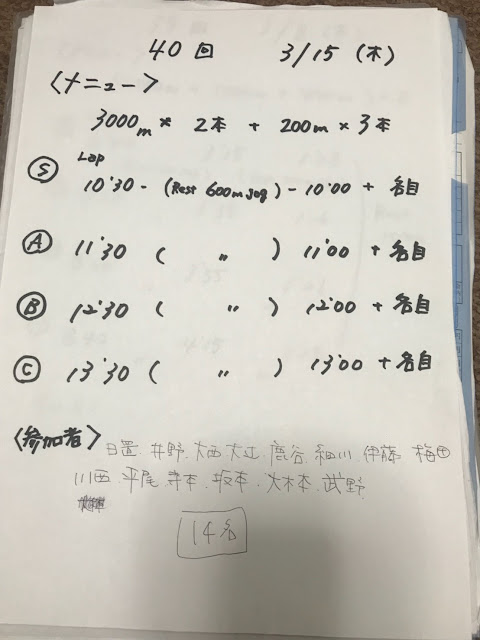 40回 3/15 (木)
〈メニュー〉
3000m * 2本 + 200m * 3本
Ⓢ Lap 10'30 - (Rest 600m jog) - 10'00 + 各自
Ⓐ 11'30 ( 〃 ) 11'00 + 各自
Ⓑ 12'30 ( 〃 ) 12'00 + 各自
Ⓒ 13'30 ( 〃 ) 13'00 + 各自
〈参加者〉日置. 井野. 大西. 大江. 鹿谷. 細川. 伊藤 梅田
川西. 平尾. 寺本. 坂本. 大木本. 武野
14名